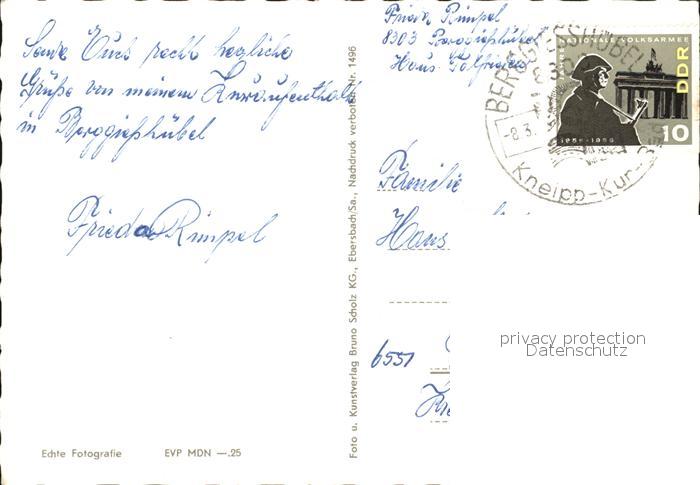 Sende Euch recht herzliche
Grüße von meinem Kuraufenthalt
in Berggießhübel
Frieda Rimpel
Echte Fotografie
EVP MDN —.25
Foto u. Kunstverlag Bruno Scholz KG., Ebersbach/Sa., Nachdruck verboten Nr. 1496
Frieda Rimpel
8303 Berggießhübel
Haus
BERGGIESSHÜBEL
-8.3.
Kneipp-Kur-
NATIONALE VOLKSARMEE
DDR
1956-1966
10
Familie
Hans
6551
privacy protection
Datenschutz